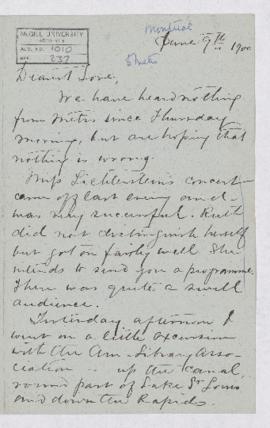 McGILL UNIVERSITY
ARCHIVES
ACC. NO. 1010
REF. 237
Montreal
June 9th 1900
5 Metis
Dearest Love,
We have heard nothing
from Metis since Thursday
morning, but are hoping that
nothing is wrong.
Miss Lichtenstein's concert
came off last eveng and
was very successful. Ruth
did not distinguish herself
but got on fairly well. She
intends to send you a programme.
There was quite a swell
audience.
Yesterday afternoon I
went on a little excursion
with the Am. Library Asso-
ciation -- up the canal,
round part of Lake St Louis
and down the Rapids